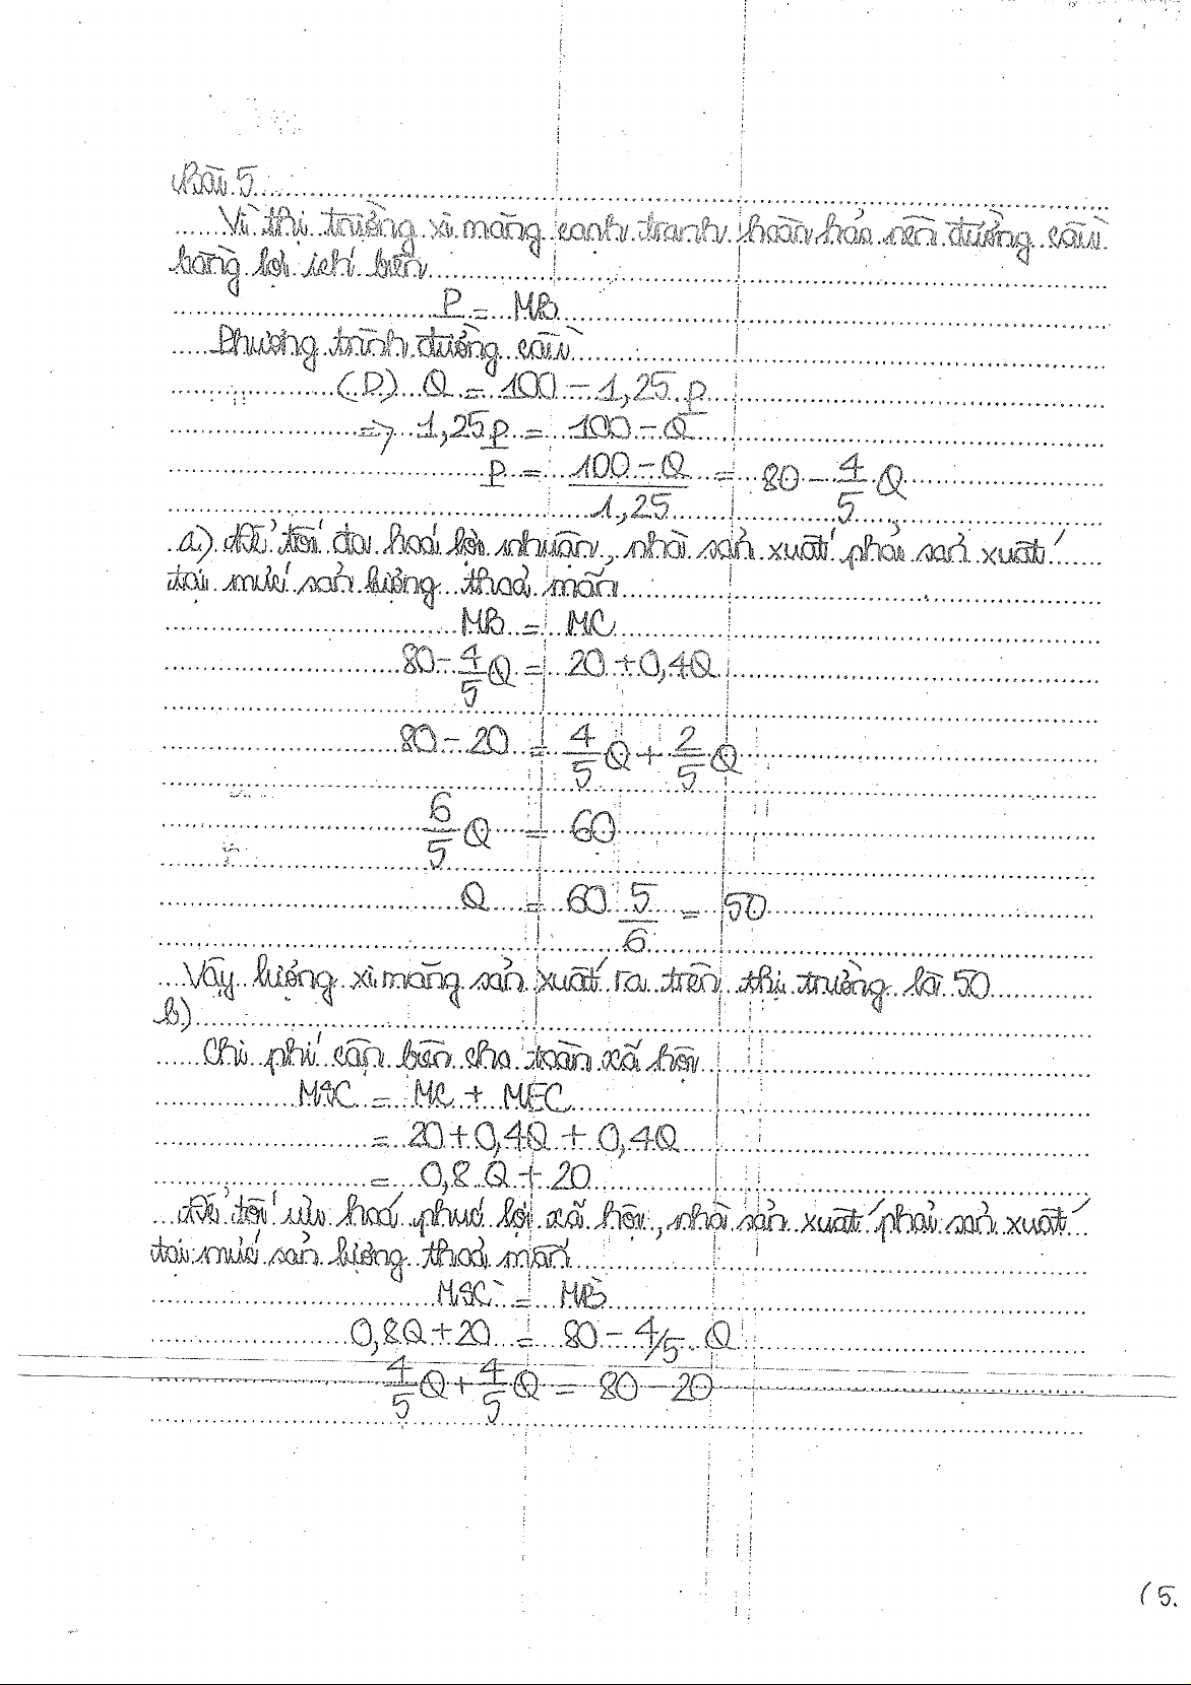 Bài 5
Vì thị trường xi măng cạnh tranh hoàn hảo nên đường cầu
bằng lợi ích biên
P = MB
Phương trình đường cầu
(D) Q = 100 - 1,25 P
=> 1,25P = 100 - Q
P = (100 - Q)/1,25 = 80 - 4/5 Q
a) Để tối đa hoá lợi nhuận, nhà sản xuất phải sản xuất
tại mức sản lượng thoả mãn
MB = MC
80 - 4/5 Q = 20 + 0,4Q
80 - 20 = 4/5 Q + 2/5 Q
6/5 Q = 60
Q = 60 . 5/6 = 50
Vậy lượng xi măng sản xuất ra trên thị trường là 50
b)
Chi phí cận biên cho toàn xã hội
MSC = MC + MEC
= 20 + 0,4Q + 0,4Q
= 0,8Q + 20
Để tối ưu hoá phúc lợi xã hội, nhà sản xuất phải sản xuất
tại mức sản lượng thoả mãn
MSC = MB
0,8Q + 20 = 80 - 4/5 Q
4/5 Q + 4/5 Q = 80 - 20
(5.